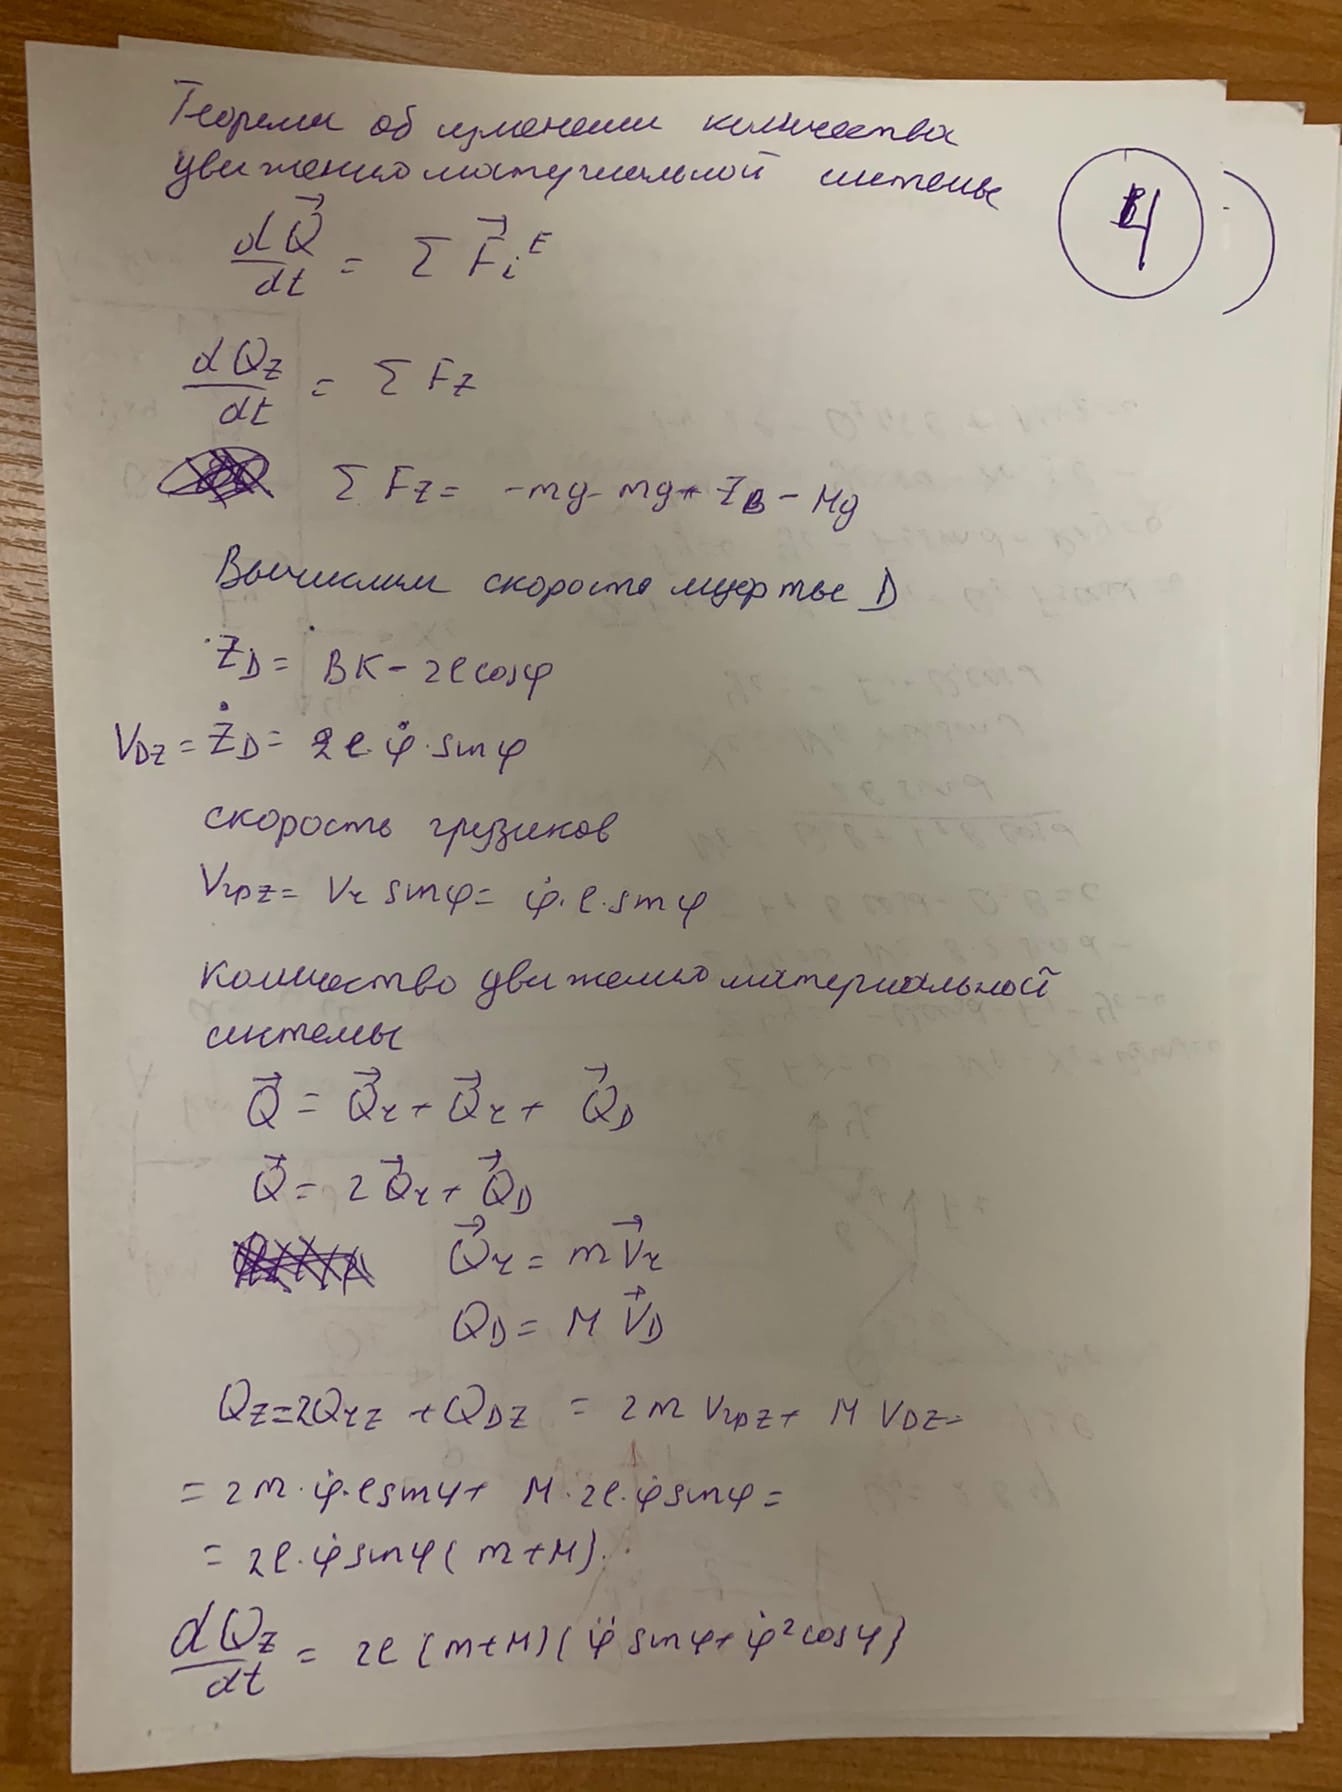 Теорема об изменении количества
движения материальной системы
4
dQ⃗/dt = Σ F⃗ᵢᴱ
dQz/dt = Σ Fz
Σ Fz = -mg - mg + ZB - Mg
Вычислим скорость муфты D
ZD = BK - 2l cosφ
VDz = ŻD = 2l·φ̇·sinφ
скорость грузиков
Vгрz = Vг sinφ = φ̇·l·sinφ
Количество движения материальной
системы
Q⃗ = Q⃗г + Q⃗г + Q⃗D
Q⃗ = 2Q⃗г + Q⃗D
Q⃗г = mV⃗г
QD = M V⃗D
Qz = 2Qгz + QDz = 2m Vгрz + M VDz =
= 2m·φ̇·l sinφ + M·2l·φ̇ sinφ =
= 2l·φ̇ sinφ (m+M).
dQz/dt = 2l (m+M)(φ̈ sinφ + φ̇² cosφ)